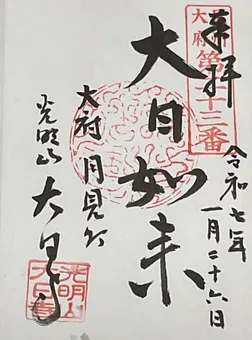 奉拝
大府
十三番
大日如来
令和七年
一月二十六日
大府 月見町
光明山 大日寺
光明山
大日寺